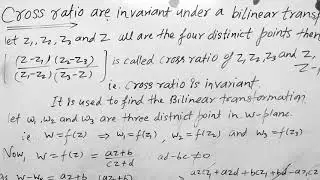 Cross ratio are invariant under a bilinear transf
let z₁, z₂, z₃ and z all are the four distinct points then
(z-z₁)(z₂-z₃) / (z₁-z₂)(z₃-z) is called cross ratio of z₁, z₂, z₃ and z,
i.e. cross ratio is invariant.
It is used to find the Bilinear transformation.
let w₁, w₂ and w₃ are three distinct point in w-plane.
i.e w=f(z) ⇒ w₁=f(z₁), w₂=f(z₂) and w₃=f(z₃)
Now, w=f(z) = az+b / cz+d ad-bc≠0,